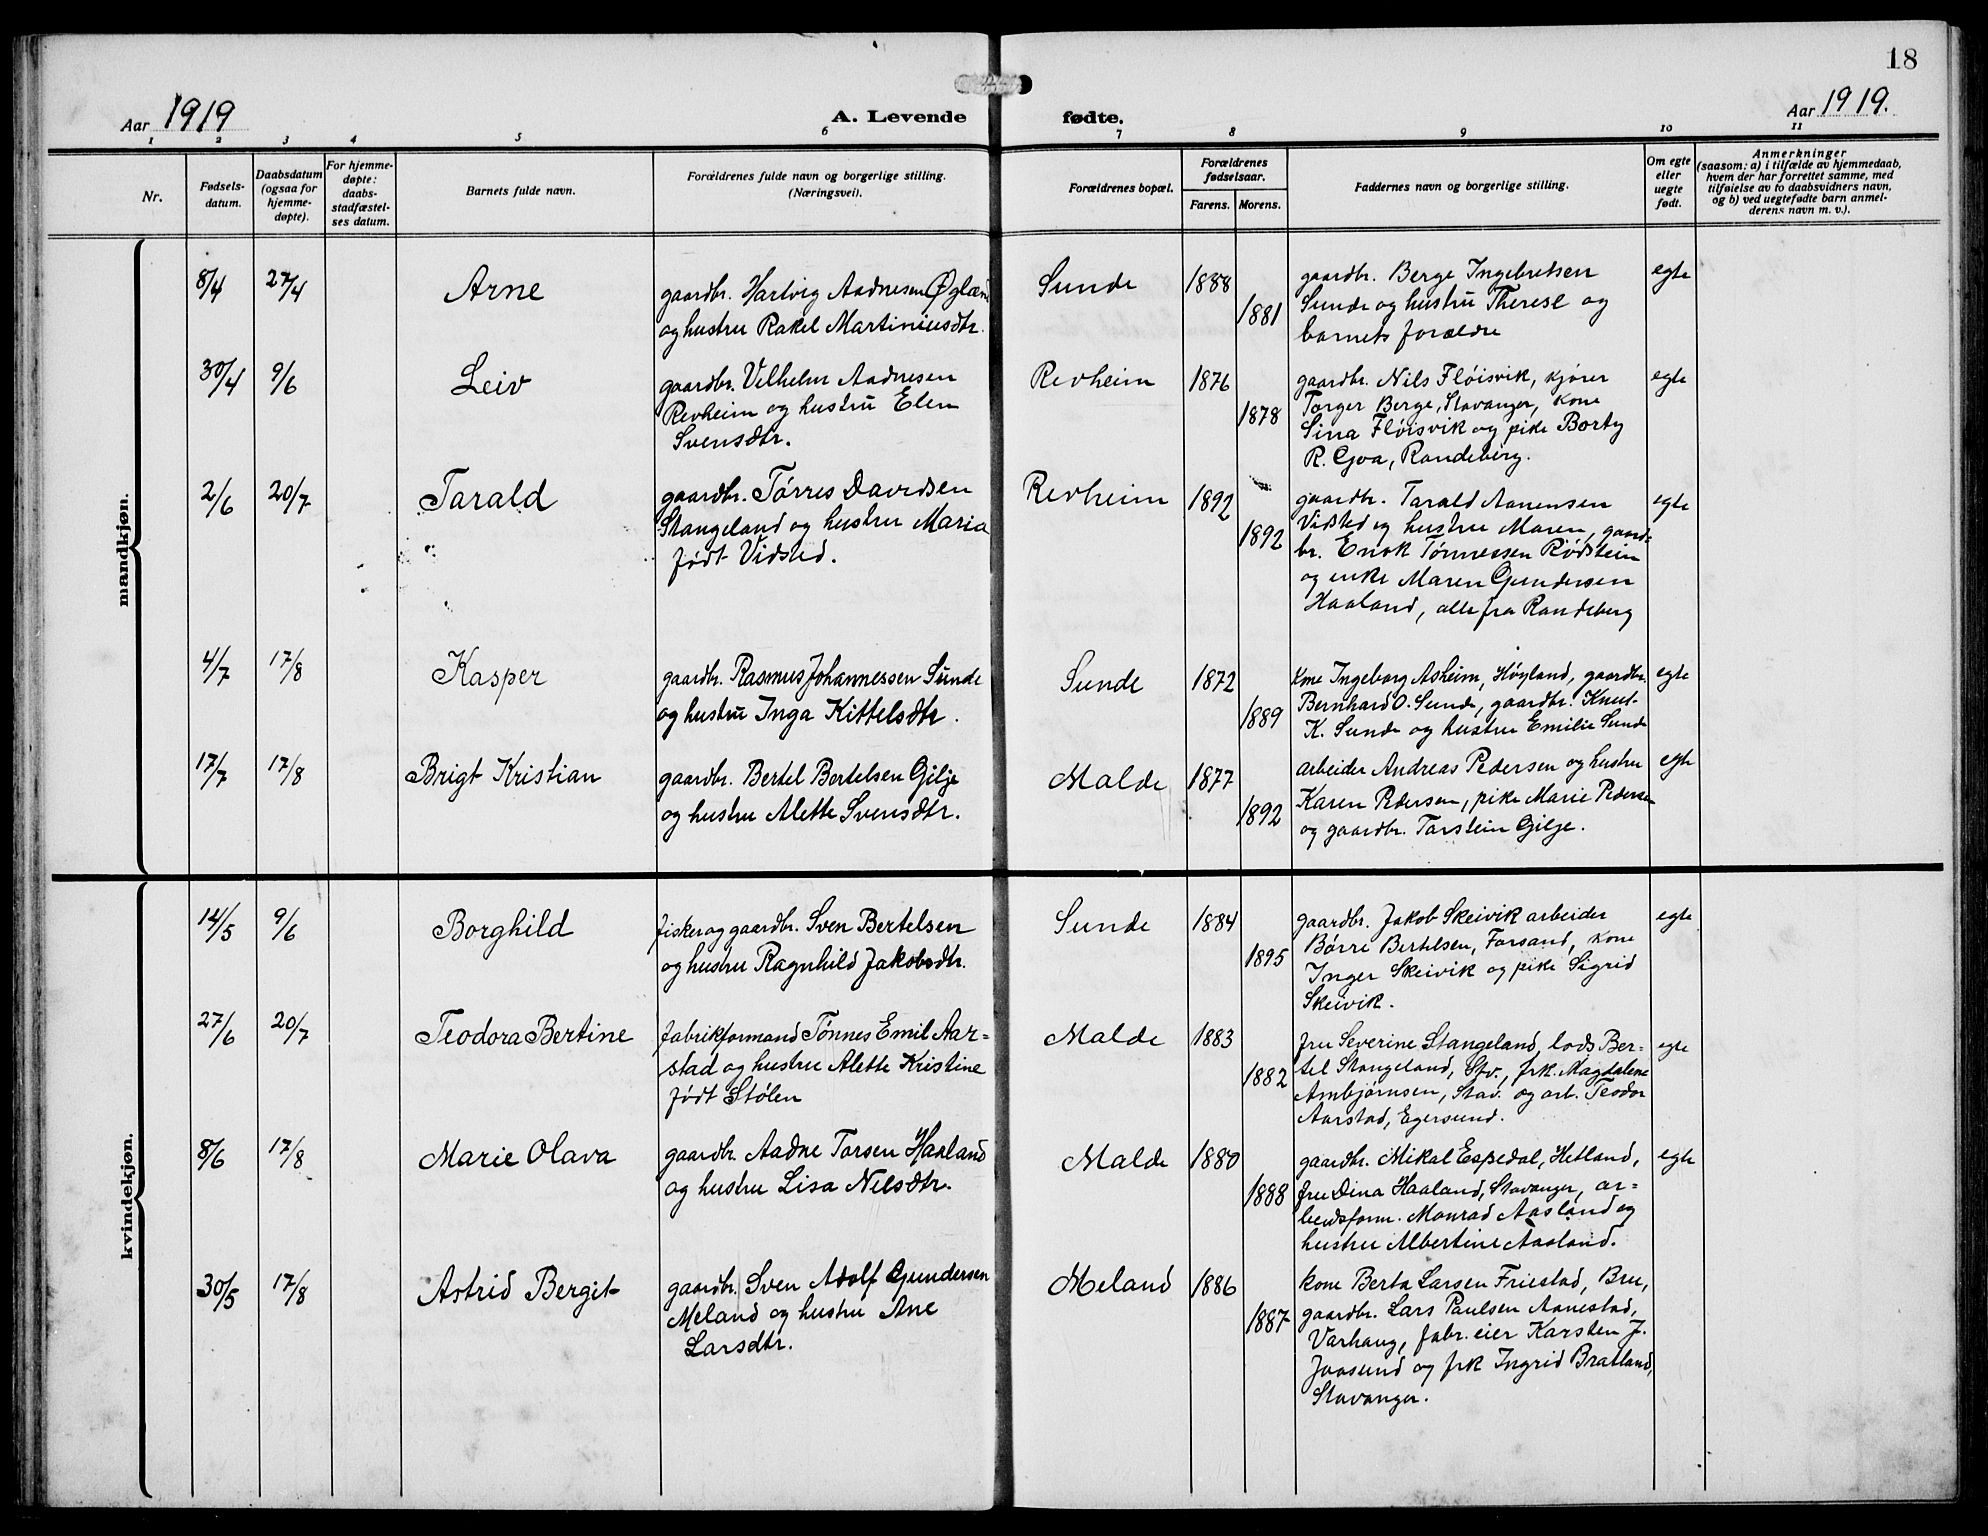 18
Aar 1919
A. Levende fødte.
Aar 1919.
1 2 3 4 5 6 7 8 9 10 11
Nr.
Fødsels-
datum.
Daabsdatum
(ogsaa for
hjemme-
døpte).
For hjemme-
døpte:
daabs-
stadfæstel-
ses datum.
Barnets fulde navn.
Forældrenes fulde navn og borgerlige stilling.
(Næringsvei).
Forældrenes bopæl.
Forældrenes
fødselsaar.
Farens. Morens.
Faddernes navn og borgerlige stilling.
Om egte
eller
uegte
født.
Anmerkninger
(saasom: a) i tilfælde av hjemmedaab,
hvem der har forrettet samme, med
tilføielse av to daabsvidners navn,
og b) ved uegtefødte barn anmel-
derens navn m. v.).
mandkjøn.
8/4 27/4 Arne
gaardbr. Hartvig Aadnesen Øglænd
og hustru Rakel Martiniusdtr.
Sunde 1888
1881
gaardbr. Berge Ingebretsen
Sunde og hustru Therese og
barnets forældre
egte
30/4 9/6 Leiv
gaardbr. Vilhelm Aadnesen
Revheim og hustru Elen
Svensdtr.
Revheim 1876
1878
gaardbr. Nils Fløisvik, kjører
Torger Berge, Stavanger, kone
Sina Fløisvik og pike Borty
R. Goa, Randeberg.
egte
2/6 20/7 Tarald
gaardbr. Tørres Davidsen
Stangeland og hustru Maria
født Vidsted.
Revheim 1892
1892
gaardbr. Tarald Aanensen
Vidsted og hustru Maren, gaard-
br. Enok Tønnessen Rødstein
og enke Maren Gundersen
Haaland, alle fra Randeberg
egte
4/7 17/8 Kasper
gaardbr. Rasmus Johannessen Sunde
og hustru Inga Kittelsdtr.
Sunde 1872
1889
kone Ingeborg Asheim, Høyland, gaardbr.
Bernhard O. Sunde, gaardbr. Knut
K. Sunde og hustru Emilie Sunde
egte
17/7 17/8 Brigt Kristian
gaardbr. Bertel Bertelsen Gilje
og hustru Alette Svensdtr.
Malde 1877
1892
arbeider Andreas Pedersen og hustru
Karen Pedersen, pike Marie Pedersen
og gaardbr. Torstein Gilje.
egte
kvindekjøn.
14/5 9/6 Borghild
fisker og gaardbr. Sven Bertelsen
og hustru Ragnhild Jakobsdtr.
Sunde 1884
1895
gaardbr. Jakob Skeivik arbeider
Børre Bertelsen, Forsand, kone
Inger Skeivik og pike Sigrid
Skeivik.
egte
27/6 20/7 Teodora Bertine
fabrikformand Tønnes Emil Aar-
stad og hustru Alette Kristine
født Stølen
Malde 1883
1882
fru Severine Stangeland, lods Ber-
tel Stangeland, Stv., frk. Magdalene
Ambjørnsen, Stav. og arb. Teodor
Aarstad, Egersund.
egte
8/6 17/8 Marie Olava
gaardbr. Aadne Torsen Haaland
og hustru Lisa Nilsdtr.
Malde 1880
1888
gaardbr. Mikal Espedal, Hetland,
fru Dina Haaland, Stavanger, ar-
beidsform. Monrad Aasland og
hustru Albertine Aasland.
egte
30/5 17/8 Astrid Bergit
gaardbr. Sven Adolf Gundersen
Meland og hustru Ane
Larsdtr.
Meland 1886
1887
kone Berta Larsen Friestad, Bru,
gaardbr. Lars Paulsen Aanestad,
Varhaug, fabr. eier Karsten J.
Jaasund og frk Ingrid Bratland,
Stavanger.